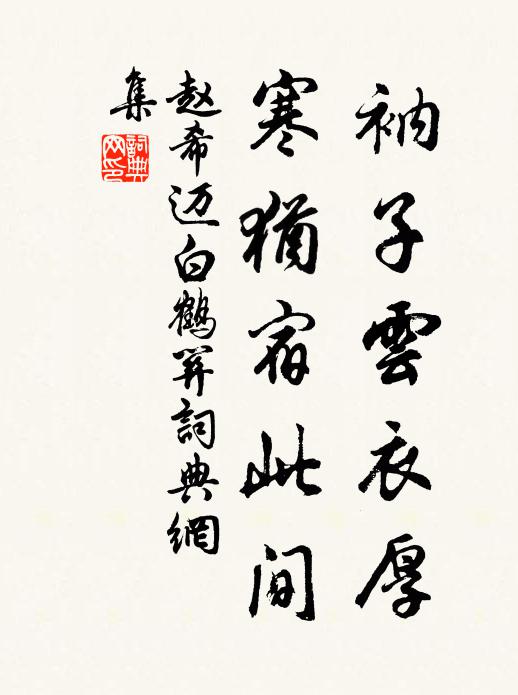 衲子雲衣厚
寒猶宿此间
赵希迈白鶴
詞典網
集
詞典网印